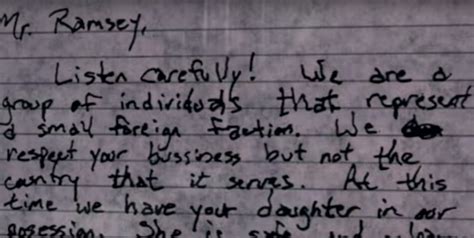 Mr. Ramsey,
Listen carefully! We are a
group of individuals that represent
a small foreign faction. We
respect your bussiness but not the
country that it serves. At this
time we have your daughter in our
posession. She is safe and